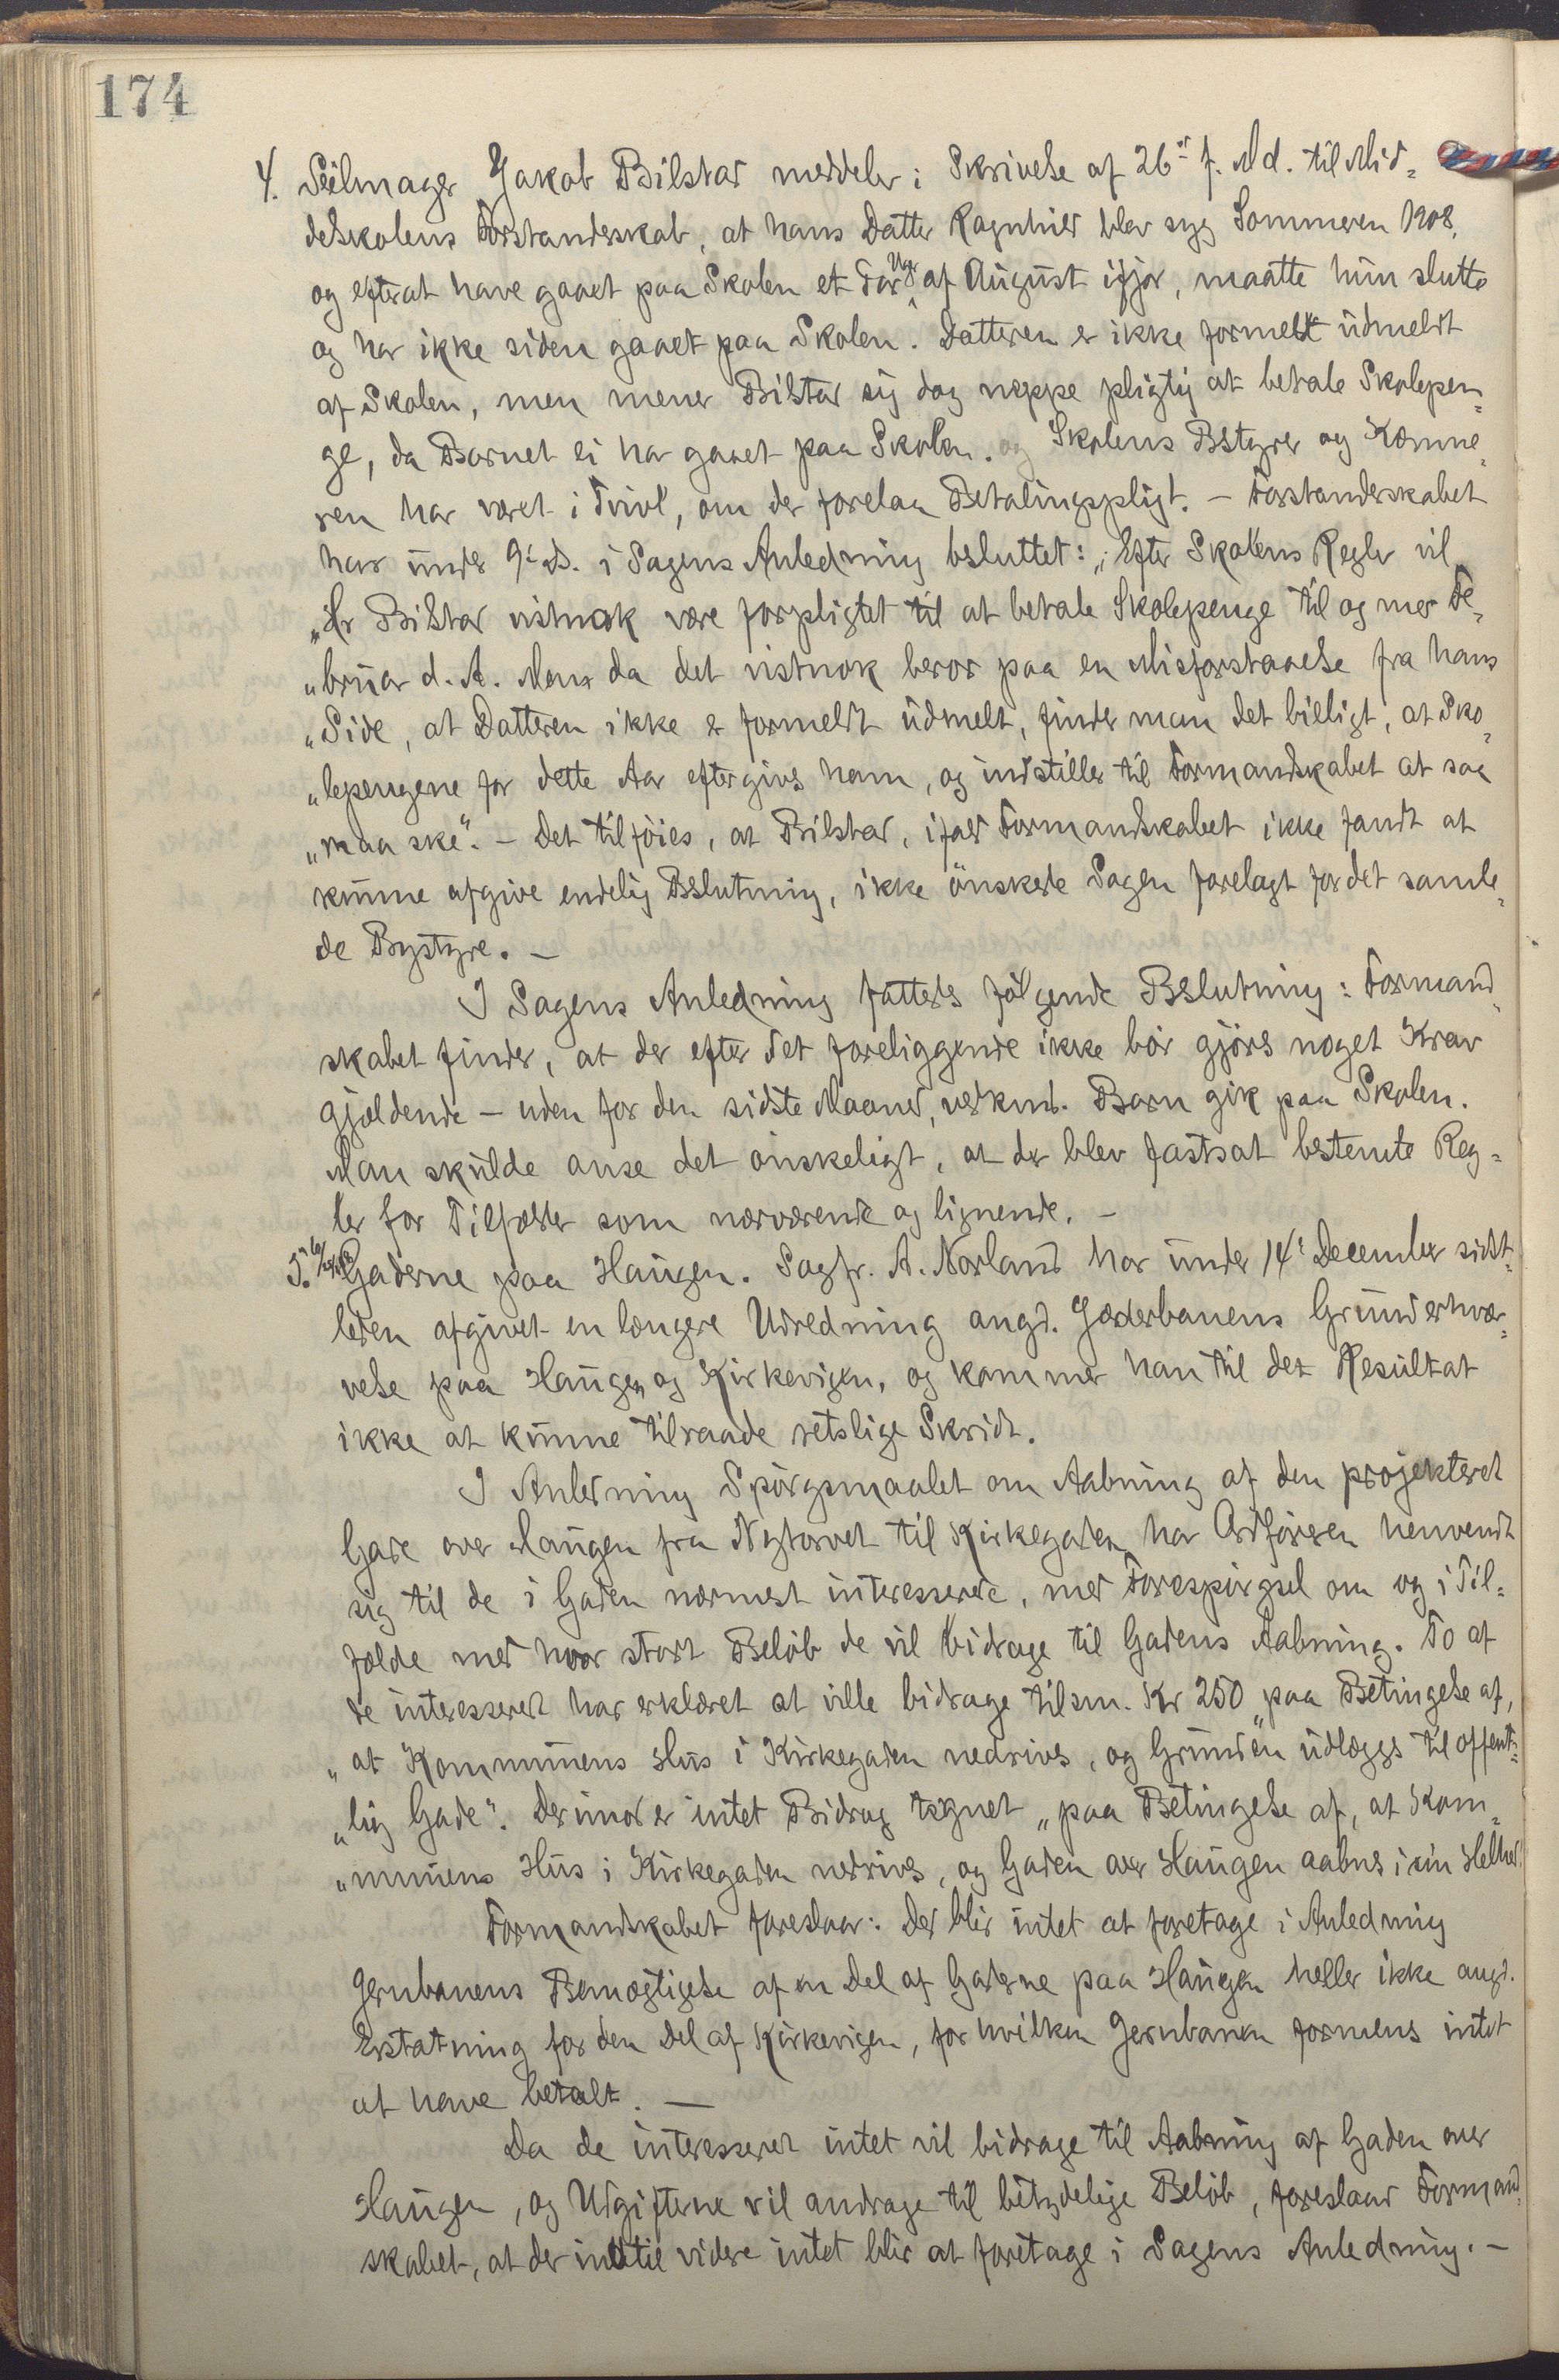 174
4. Seilmager Jakob Bilstad meddeler i Skrivelse af 26de f. Md. til Mid=
delskolens Forstanderskab, at hans Datter Ragnhild blev syg Sommeren 1908,
og efterat have gaaet paa Skolen et Par Uger af August ifjor, maatte hun slutte
og har ikke siden gaaet paa Skolen. Datteren er ikke formelt udmeldt
af Skolen, men mener Bilstad sig dog neppe pligtig at betale Skolepen=
ge, da Barnet ei har gaaet paa Skolen. og Skolens Bestyrer og Kæmne=
ren har været i Tvivl, om der forelaa Betalingspligt. - Forstanderskabet
har under 9de ds. i Sagens Anledning besluttet: "Efter Skolens Regler vil
"Hr Bilstad vistnok være forpligtet til at betale Skolepenge til og med Fe=
"bruar d. A. Men da det vistnok beror paa en Misforstaaelse fra hans
"Side, at Datteren ikke er formeldt udmelt, finder man det billigt, at Sko=
"lepengene for dette Aar eftergives ham, og indstiller til Formandskabet at saa
"maa ske". - Det tilföies, at Bilstad, ifald Formandskabet ikke fandt at
kunne afgive endelig Beslutning, ikke önskede Sagen forelagt for det samle=
de Bystyre. -
I Sagens Anledning fattedes fölgende Beslutning: Formand=
skabet finder, at der efter det foreliggende ikke bör gjöres noget Krav
gjældende - uden for den sidste Maaned, vedkmd. Barn gik paa Skolen.
Man skulde anse det önskeligt, at der blev fastsat bestemte Reg=
ler for Tilfælder som nærværende og lignende. -
5. Gaderne paa Haugen. Sagfr. A. Norland har under 14de December sidst=
leden afgivet en længere Udredning angd. Jæderbanens Grunderhver=
velse paa Haugen og Kirkevigen, og kommer han til det Resultat
ikke at kunne tilraade retslige Skridt.
I Anledning Spörgsmaalet om Aabning af den projekteret
Gade over Haugen fra Nytorvet til Kirkegaden har Ordföreren henvendt
sig til de i Gaden nærmest interesserede, med Forespörgsel om og i Til=
fælde med hvor stort Belöb de vil bidrage til Gadens Aabning. To af
de interesseret har erklæret at ville bidrage tilsm. Kr 250 "paa Betingelse af,
"at Kommunens Hus i Kirkegaden nedrives, og Grunden udlægges til offent=
"lig Gade". Derimod er intet Bidrag tegnet "paa Betingelse af, at Kom=
"munens Hus i Kirkegaden nedrives, og Gaden over Haugen aabnes i sin Helhed.
Formandskabet foreslaar: Der blir intet at foretage i Anledning
Jernbanens Bemægtigelse af en Del af Gaderne paa Haugen heller ikke angd.
Erstatning for den Del af Kirkevigen, for hvilken Jernbanen formens intet
at have betalt. -
Da de interesseret intet vil bidrage til Aabning af Gaden over
Haugen, og Udgifterne vil andrage til betydelige Belöb, foreslaar Formand=
skabet, at der indtil videre intet blir at foretage i Sagens Anledning. -